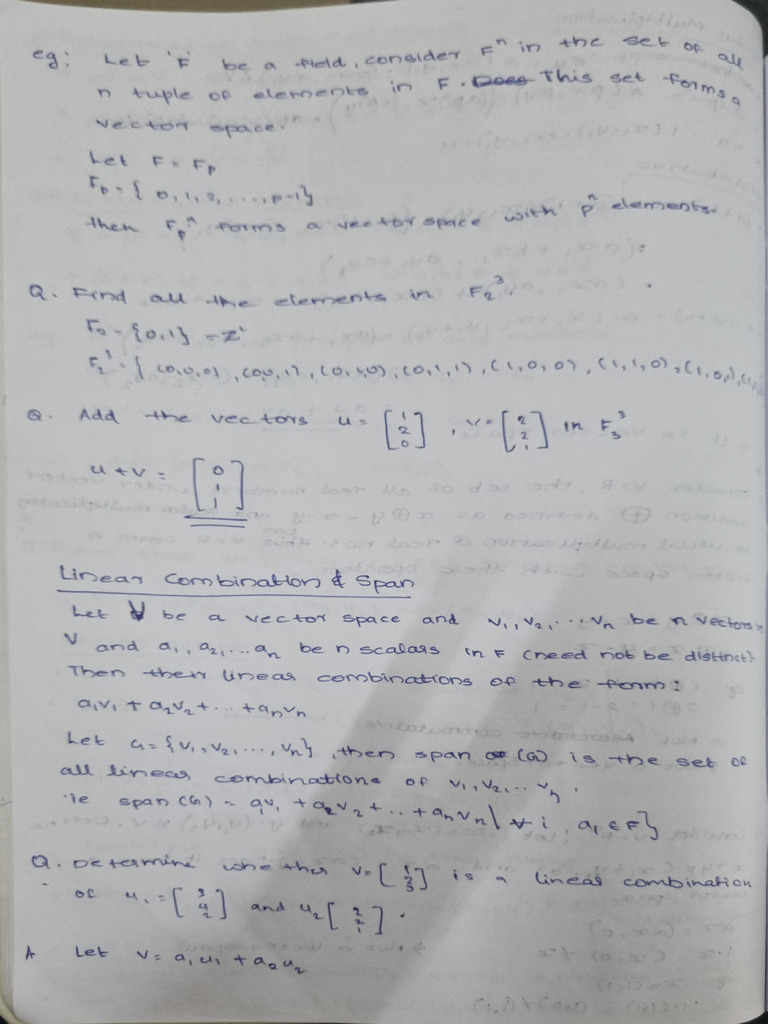 eg: Let 'F' be a field, consider Fⁿ in the set of all
n tuple of elements in F. This set forms a
vector space.
Let F = Fp
Fp = { 0, 1, 2, ...., p-1}
then Fpⁿ forms a vector space with pⁿ elements.
Q. Find all the elements in F₂³.
F₂ = {0,1} = Z
F₂³ = { (0,0,0), (0,0,1), (0,1,0), (0,1,1), (1,0,0), (1,1,0), (1,0,1), (1,
Q. Add the vectors u = [1 2 0], v = [2 2 1] in F₃³
u + v = [0 1 1]
Linear Combination & Span
Let V be a vector space and v₁, v₂, ... vn be n vectors in
V and a₁, a₂, ... an be n scalars in F (need not be distinct)
Then their linear combinations of the form:
a₁v₁ + a₂v₂ + .. + anvn
Let G = {v₁, v₂, ..., vn}, then span (G) is the set of
all linear combinations of v₁, v₂, .. vn.
ie span (G) = a₁v₁ + a₂v₂ + .. + anvn | ∀ i, ai ∈ F}
Q. Determine whether v = [1 2 3] is a linear combination
of u₁ = [3 4 2] and u₂ [2 2 1].
A Let v = a₁u₁ + a₂u₂